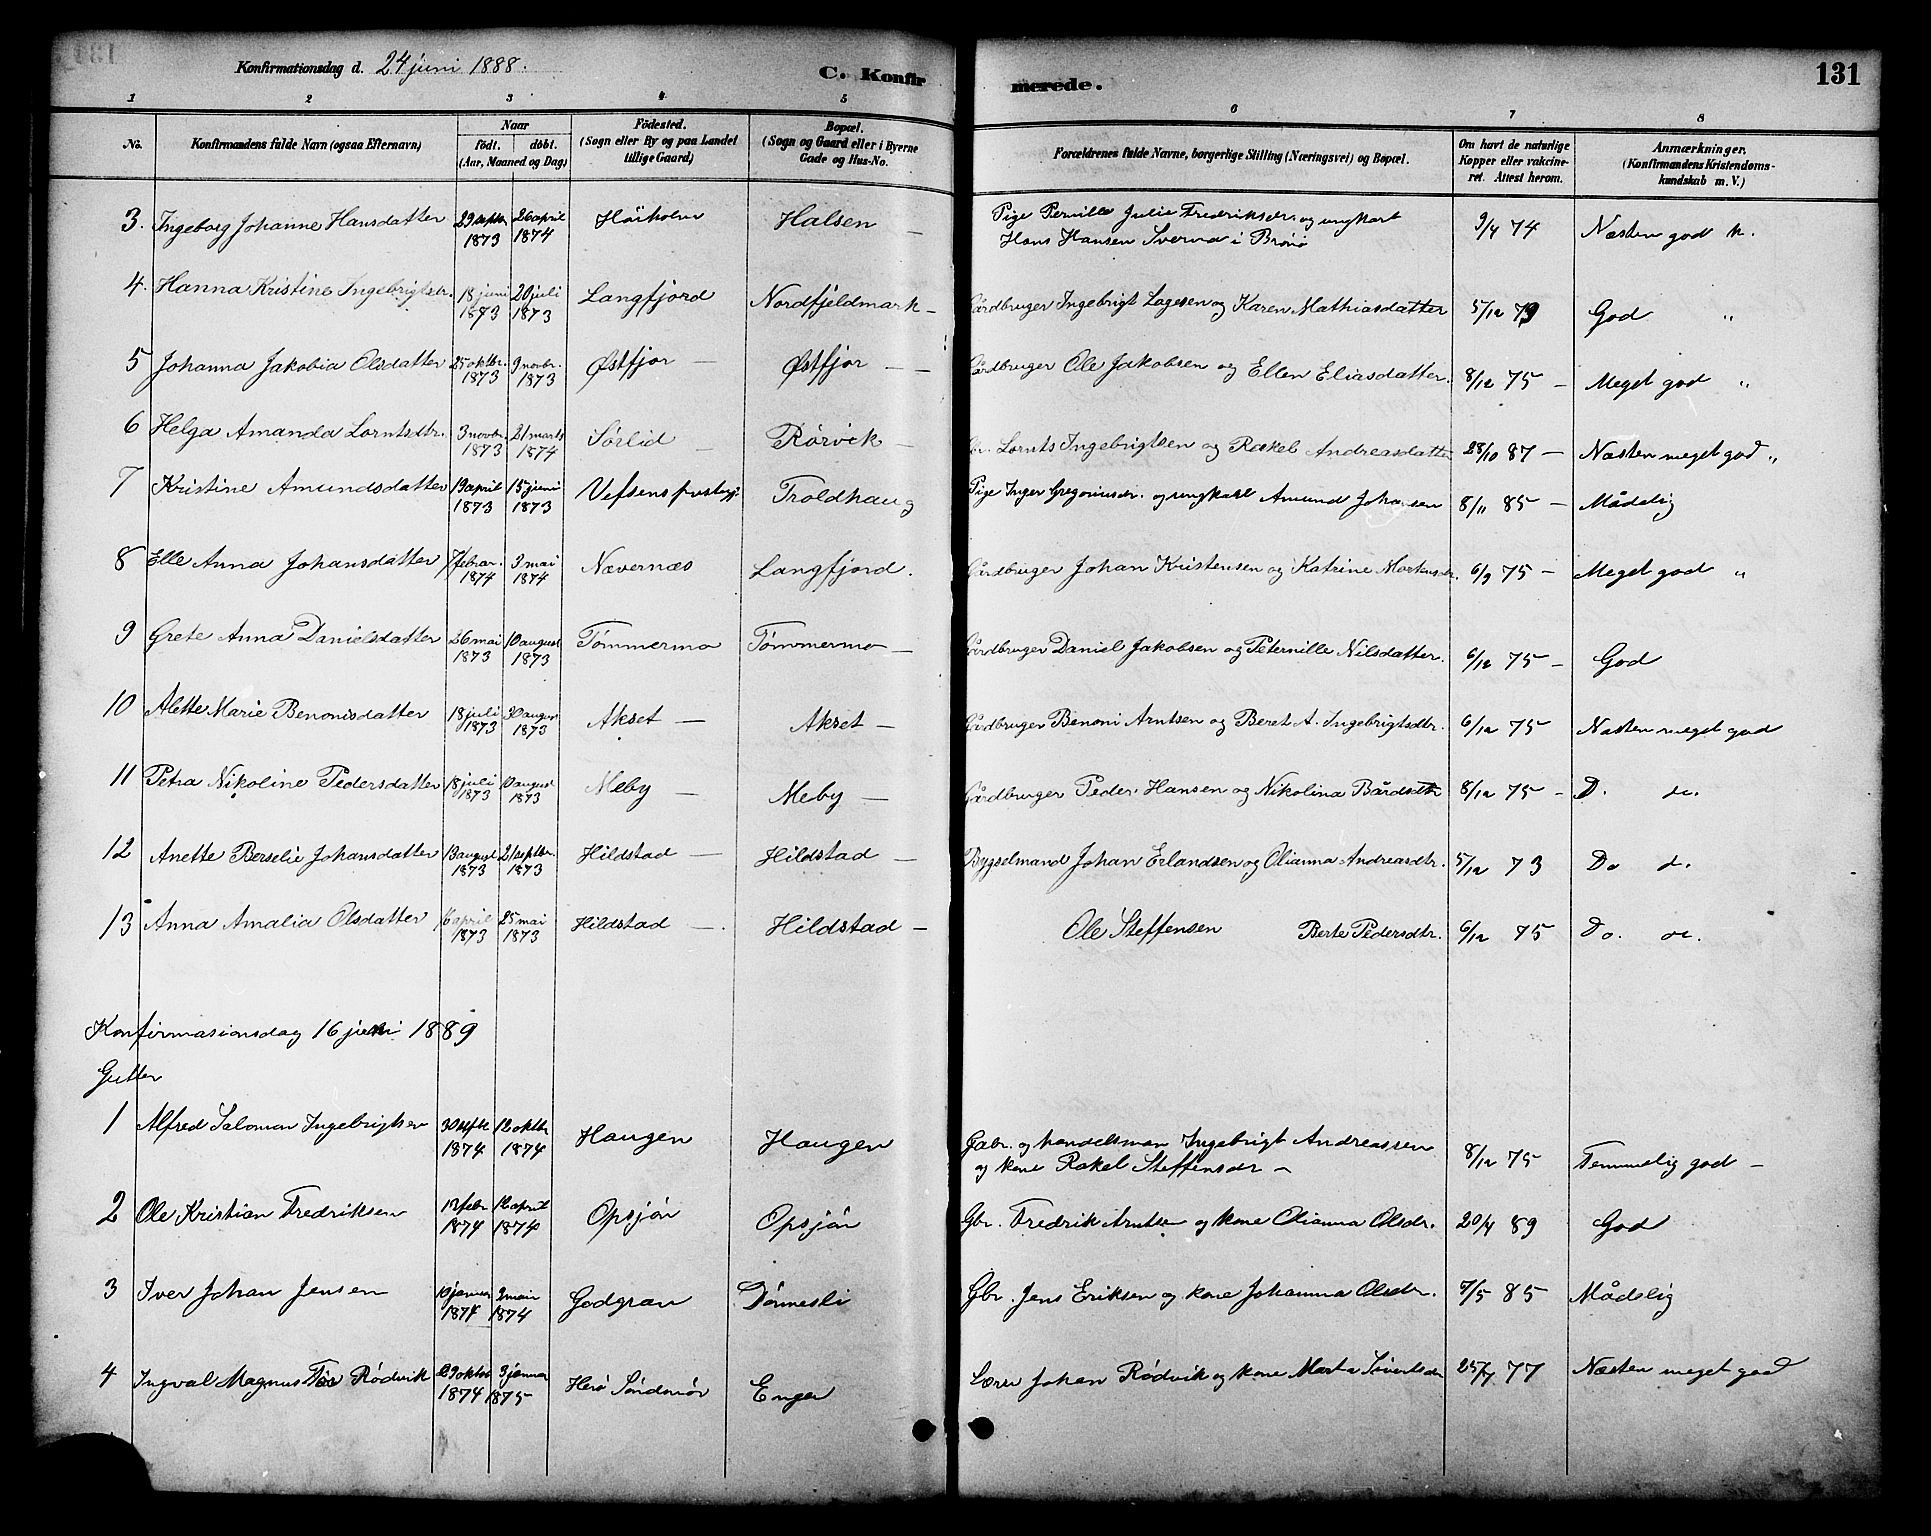 Konfirmationsdag d. 24 juni 1888. C. Konfir merede. 131
1 2 3 4 5 6 7 8
No. Konfirmandens fulde Navn (ogsaa Efternavn) Naar födt. döbt. (Aar, Maaned og Dag) Födested. (Sogn eller By og paa Landet tillige Gaard) Bopæl. (Sogn og Gaard eller i Byerne Gade og Hus-No. Forældrenes fulde Navne, borgerlige Stilling (Næringsvei) og Bopæl. Om havt de naturlige Kopper eller vakcineret. Attest herom. Anmærkninger. (Konfirmandens Kristendomskundskab m. V.)
3. Ingeborg Johanne Hansdatter 29 septbr 1873 26 april 1874 Höiholm Halsen — Pige Pernille Julie Fredriksdr. og ungkart
Hans Hansen Sverna i Brönö 9/4 74 Næsten god k.
4. Hanna Kristine Ingebrigtsdr. 18 juni 1873 20 juli 1873 Langfjord Nordfjeldmark — Gårdbruger Ingebrigt Lagesen og Karen Mathiasdatter 5/12 79 God "
5 Johanna Jakobia Olsdatter 25 oktbr. 1873 9 novbr. 1873 Østfjor — Østfjor — — Gårdbruger Ole Jakobsen og Ellen Eliasdatter. 8/12 75 — Meget god "
6 Helga Amanda Lorntsdtr. 3 novbr. 1873 21 marts 1874 Sörlid — Rörvik — Gbr. Lornts Ingebrigtsen og Rakel Andreasdatter 28/10 87 — Næsten meget god "
7 Kristine Amundsdatter 19 april 1873 15 juni 1873 Vefsens Troldhaug Pige Inger Gregoriusdr. og ungkarl Amund Johansen 8/11 85 — Mådelig
8 Elle Anna Johansdatter 7 febrar. 1874 3 mai 1874 Nævernæs Langfjord. Gårdbruger Johan Kristensen og Katrine 6/9 75 — Meget god "
9 Grete Anna Danielsdatter 26 mai 1873 10 august 1873 Tømmermo Tømmermo — Gårdbruger Daniel Jakobsen og Peternille Nilsdatter. 6/12 75 — God
10 Alette Marie Benonisdatter 18 juli 1873 30 august 1873 Akset — Akset — Gårdbruger Benoni Arntsen og Beret A. Ingebrigtsdtr. 6/12 75 Næsten meget god
11 Petra Nikoline Pedersdatter 18 juli 1873 10 august 1873 Meby — Meby — Gårdbruger Peder Hansen og Nikolina Bårdsdtr 8/12 75 — D. do.
12 Anette Berselie Johansdatter 13 august 1873 21 septbr. 1873 Hildstad — Hildstad — Bygselmand Johan Erlandsen og Olianna Andreasdtr. 5/12 73 Do d.
13 Anna Amalia Olsdatter 16 april 1873 25 mai 1873 Hildstad —. Hildstad — Ole Steffensen Berte Pedersdtr. 6/12 75 Do. do.
Konfirmasionsdag 16 juni 1889
Gutter
1 Alfred Salomon Ingebrigtsen 30 septbr 1874 12 oktbr 1874 Haugen Haugen Gabr. og handelsman Ingebrigt Andreassen
og kone Rakel Steffensdr — 8/12 75 Temmelig god —
2 Ole Kristian Fredriksen 13 febr 1874 12 april 1874 Opsjön Opsjön Gbr. Fredrik Arntsen og kone Olianna Olsdr. 20/4 89 God
3 Iver Johan Jensen 10 januar 1874 3 mai 1874 Godgran Dönnesli Gbr. Jens Eriksen og kone Johanna Olsdr. 7/5 85 Mådelig
4 Ingval Magnus Rödvik 29 oktbr 1874 3 januar 1875 Herö Söndmör Enger Lærer Johan Rödvik og kone Marta Sivertsdr 25/7 77 Næsten meget god